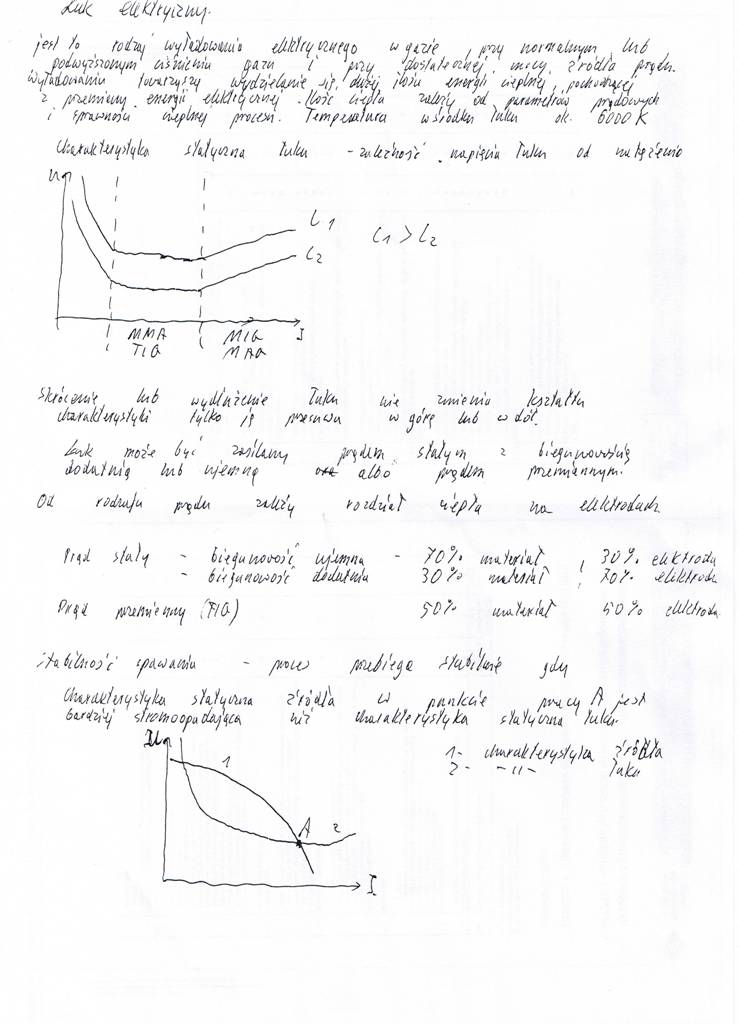 Łuk elektryczny.
jest to rodzaj wyładowania elektrycznego w gazie, przy normalnym lub
podwyższonym ciśnieniu gazu i przy dostatecznej mocy źródła prądu.
Wyładowaniu towarzyszy wydzielanie się dużej ilości energii cieplnej, pochodzącej
z przemiany energii elektrycznej. Ilość ciepła zależy od parametrów prądowych
i sprawności cieplnej procesu. Temperatura w środku łuku ok. 6000 K
Charakterystyka statyczna łuku - zależność napięcia łuku od natężenia
U
L1
L2
L1 > L2
I
MMA MIG
TIG MAG
Skrócenie lub wydłużenie łuku nie zmienia kształtu
charakterystyki tylko ją przesuwa w górę lub w dół.
Łuk może być zasilany prądem stałym z biegunowością
dodatnią lub ujemną albo prądem przemiennym.
Od rodzaju prądu zależy rozdział ciepła na elektrodach.
Prąd stały - biegunowość ujemna - 70% materiał, 30% elektroda
- biegunowość dodatnia 30% materiał, 70% elektroda
Prąd przemienny (TIG) 50% materiał 50% elektroda.
Stabilność spawania - proces przebiega stabilnie gdy
Charakterystyka statyczna źródła w punkcie pracy A jest
bardziej stromoopadająca niż charakterystyka statyczna łuku.
U
1
1- charakterystyka źródła
2- -11- łuku
A 2
I